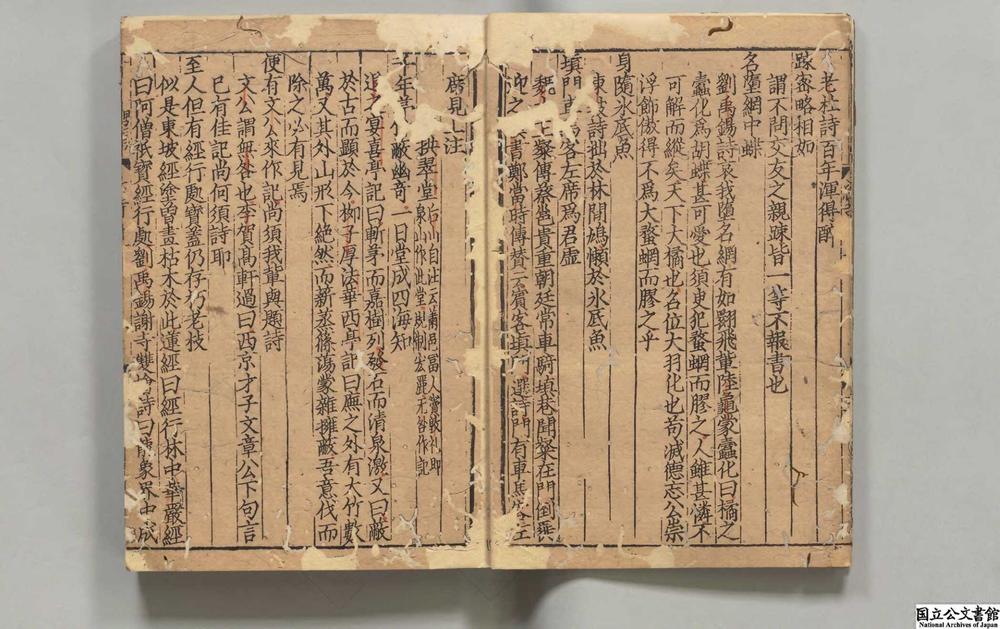 老杜詩百年渾得醉
踈密略相如
謂不問交友之親踈皆一等不報書也
名墮網中蛛
劉禹錫詩哀我墮名網有如翾飛輩陸龜蒙蠹化曰橘之
蠹化為胡蝶甚可愛也須臾犯蝥蛧而膠之人雖甚憐不
可解而縱矣天下大橘也名位大羽化也苟滅德忘公崇
浮飾傲得不為大蝥蛧而膠之乎
身隨氷底魚
東坡詩拙於林間鳩懶於氷底魚
填門車馬客左席為君虛
粲傳蔡邕貴重朝廷常車騎填巷聞粲在門倒屣
迎之書鄭當時傳賛云賓客填門選詩門有車馬客
舊見上注
拱翠堂
千年幽奇一日堂成四海知
宴喜亭記曰斬茅而嘉樹列發石而清泉激又曰蔽
於古而顯於今柳子厚法華西亭記曰廡之外有大竹數
萬又其外山形下絶然而薪蒸篠蕩蒙雜擁蔽吾意伐而
除之必有見焉
便有文公來作記尚須我輩與題詩
文公謂無咎也李賀高軒過曰西京才子文章公下句言
已有佳記尚何須詩耶
至人但有經行處寶蓋仍存朽老枝
似是東坡經塗嘗畫枯木於此蓮經曰經行林中華嚴經
曰阿僧祇寶經行處劉禹錫謝寺雙檜詩曰龍象界中成
国立公文書館
National Archives of Japan